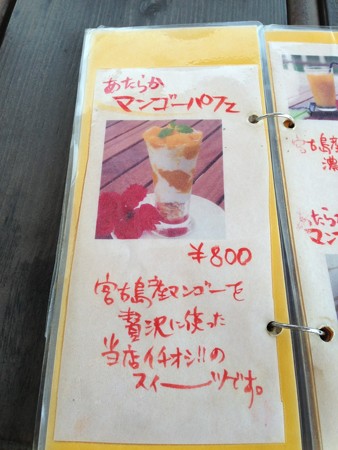 あたらか
マンゴーパフェ
¥800
宮古島産マンゴーを
贅沢に使った
当店イチオシ!!の
スイーツです。
宮古島産
濃
あたらか
マン